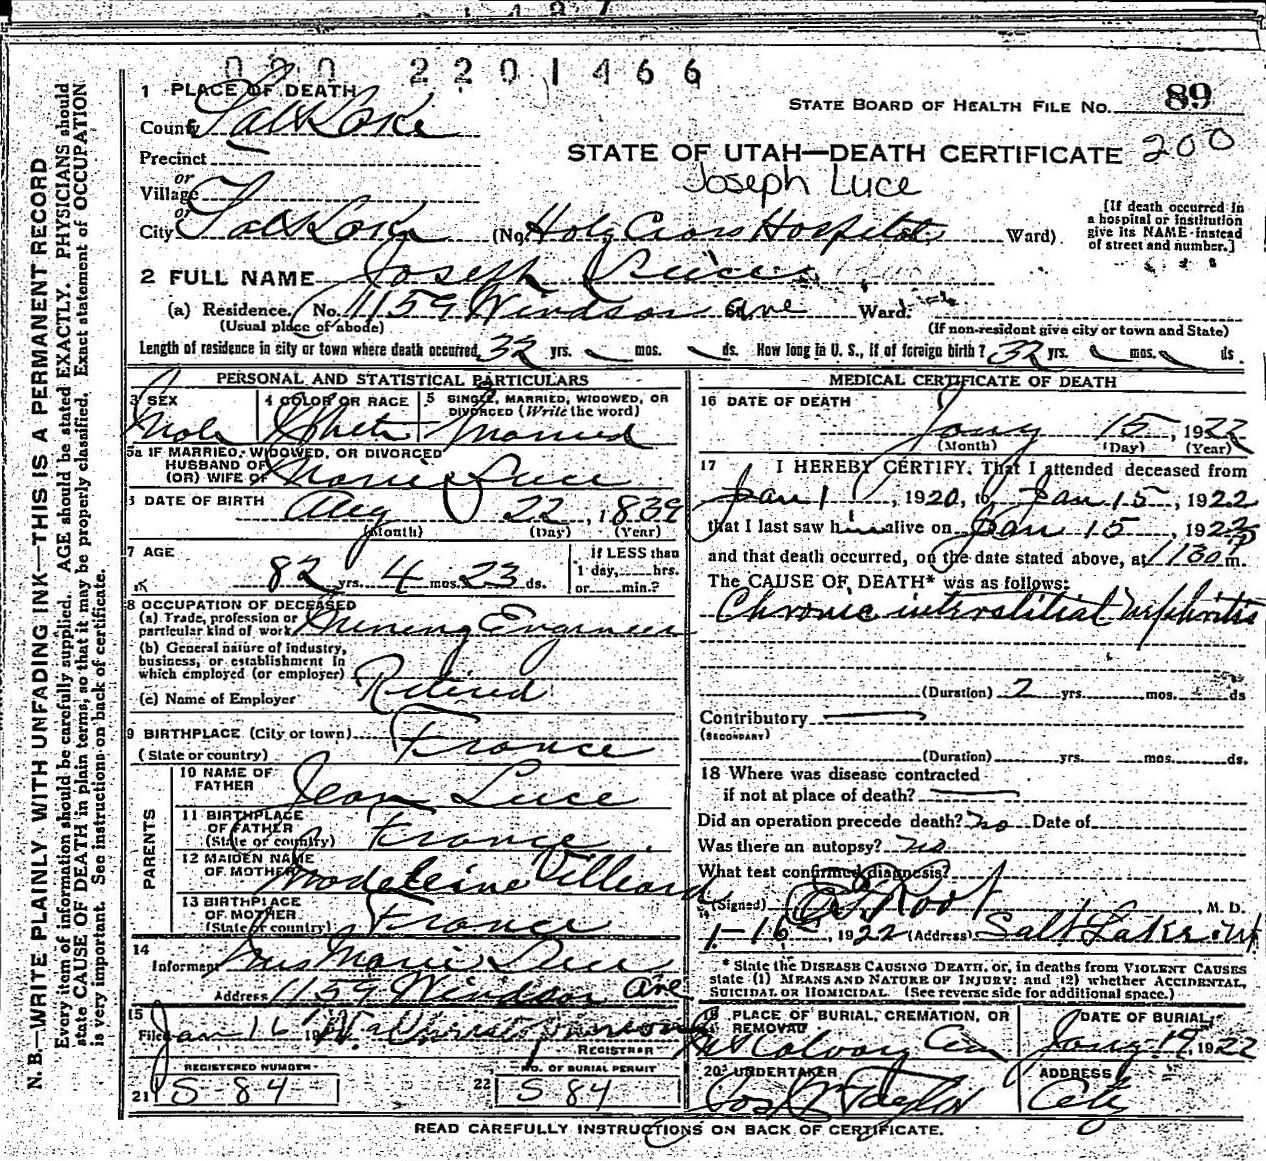 0 9 0 2 2 0 1 4 6 6
1 PLACE OF DEATH
STATE BOARD OF HEALTH FILE NO. 89
County Salt Lake
STATE OF UTAH—DEATH CERTIFICATE 200
Precinct
Joseph Luce
or
Village
or
City Salt Lake (No. Holy Cross Hospital Ward)
[If death occurred in
a hospital or institution
give its NAME instead
of street and number.]
2 FULL NAME Joseph Luce
(a) Residence. No. 1159 Windsor Ave Ward.
(Usual place of abode) (If non-resident give city or town and State)
Length of residence in city or town where death occurred 32 yrs. mos. ds. How long in U. S., if of foreign birth? 32 yrs. mos. ds.
PERSONAL AND STATISTICAL PARTICULARS
3 SEX
Male
4 COLOR OR RACE
White
5 SINGLE, MARRIED, WIDOWED, OR
DIVORCED (Write the word)
Married
5a IF MARRIED, WIDOWED, OR DIVORCED
HUSBAND OF
(OR) WIFE OF Marie Luce
6 DATE OF BIRTH
Aug 22, 1839
(Month) (Day) (Year)
7 AGE
82 yrs. 4 mos. 23 ds.
if LESS than
1 day, hrs.
or min.?
8 OCCUPATION OF DECEASED
(a) Trade, profession or
particular kind of work Mining Engineer
(b) General nature of industry,
business, or establishment in
which employed (or employer) Retired
(c) Name of Employer
9 BIRTHPLACE (City or town)
(State or country) France
PARENTS
10 NAME OF
FATHER Jean Luce
11 BIRTHPLACE
OF FATHER
(State or country) France
12 MAIDEN NAME
OF MOTHER Madeleine Villiard
13 BIRTHPLACE
OF MOTHER
(State or country) France
14
Informant Mrs Marie Luce
Address 1159 Windsor Ave
15
Filed Jan 16 19
REGISTRAR
REGISTERED NUMBER
21 S-84
NO. OF BURIAL PERMIT
22 S 84
MEDICAL CERTIFICATE OF DEATH
16 DATE OF DEATH
Jany 15, 1922
(Month) (Day) (Year)
17 I HEREBY CERTIFY, That I attended deceased from
Jan 1, 1920, to Jan 15, 1922
that I last saw him alive on Jan 15, 1922
and that death occurred, on the date stated above, at 1130 P m.
The CAUSE OF DEATH* was as follows:
Chronic interstitial nephritis
(Duration) 2 yrs. mos. ds
Contributory
(SECONDARY)
(Duration) yrs. mos. ds.
18 Where was disease contracted
if not at place of death?
Did an operation precede death? no Date of
Was there an autopsy? no
What test confirmed diagnosis?
(Signed) Root, M. D.
1-16, 1922 (Address) Salt Lake, Ut
* State the DISEASE CAUSING DEATH, or, in deaths from VIOLENT CAUSES
state (1) MEANS AND NATURE OF INJURY; and (2) whether ACCIDENTAL,
SUICIDAL OR HOMICIDAL. (See reverse side for additional space.)
19 PLACE OF BURIAL, CREMATION, OR
REMOVAL
Mt Calvary Cem
DATE OF BURIAL
Jany 17, 1922
20 UNDERTAKER
Jos Wm Taylor
ADDRESS
City
READ CAREFULLY INSTRUCTIONS ON BACK OF CERTIFICATE.
N. B.—WRITE PLAINLY WITH UNFADING INK—THIS IS A PERMANENT RECORD
Every item of information should be carefully supplied. AGE should be stated EXACTLY. PHYSICIANS should
state CAUSE OF DEATH in plain terms, so that it may be properly classified. Exact statement of OCCUPATION
is very important. See instructions on back of certificate.